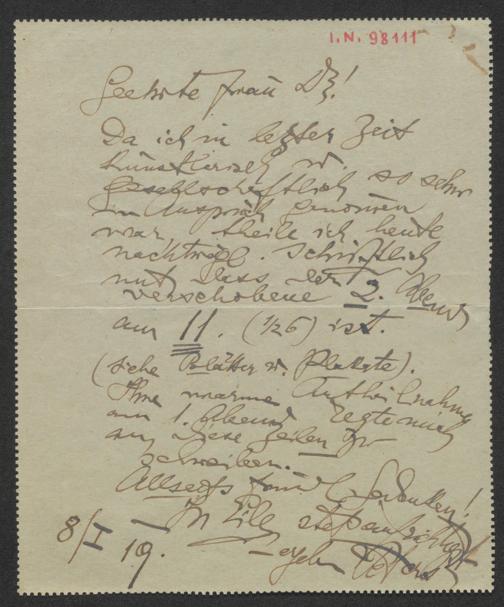 I.N. 98111
Geehrte Frau Dr!
Da ich in letzter Zeit
künstlerisch u.
gesellschaftlich so sehr
in Anspruch genommen
war, theile ich heute
nachträgl. schriftlich
mit dass der
verschobene 2. Abend
am 11. (1/2 6) ist.
(siehe Blätter u. Plakate).
Ihre warme Antheilnahme
am 1. Abend regte mich
an diese Zeilen zu
schreiben.
Allseits
In Eile
ergeben
8/I 19.